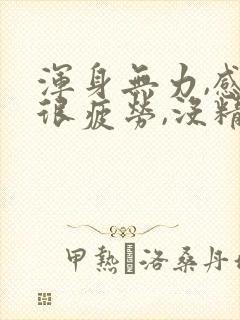 渾身無力,感
很疲勞,沒精
甲熱洛桑丹